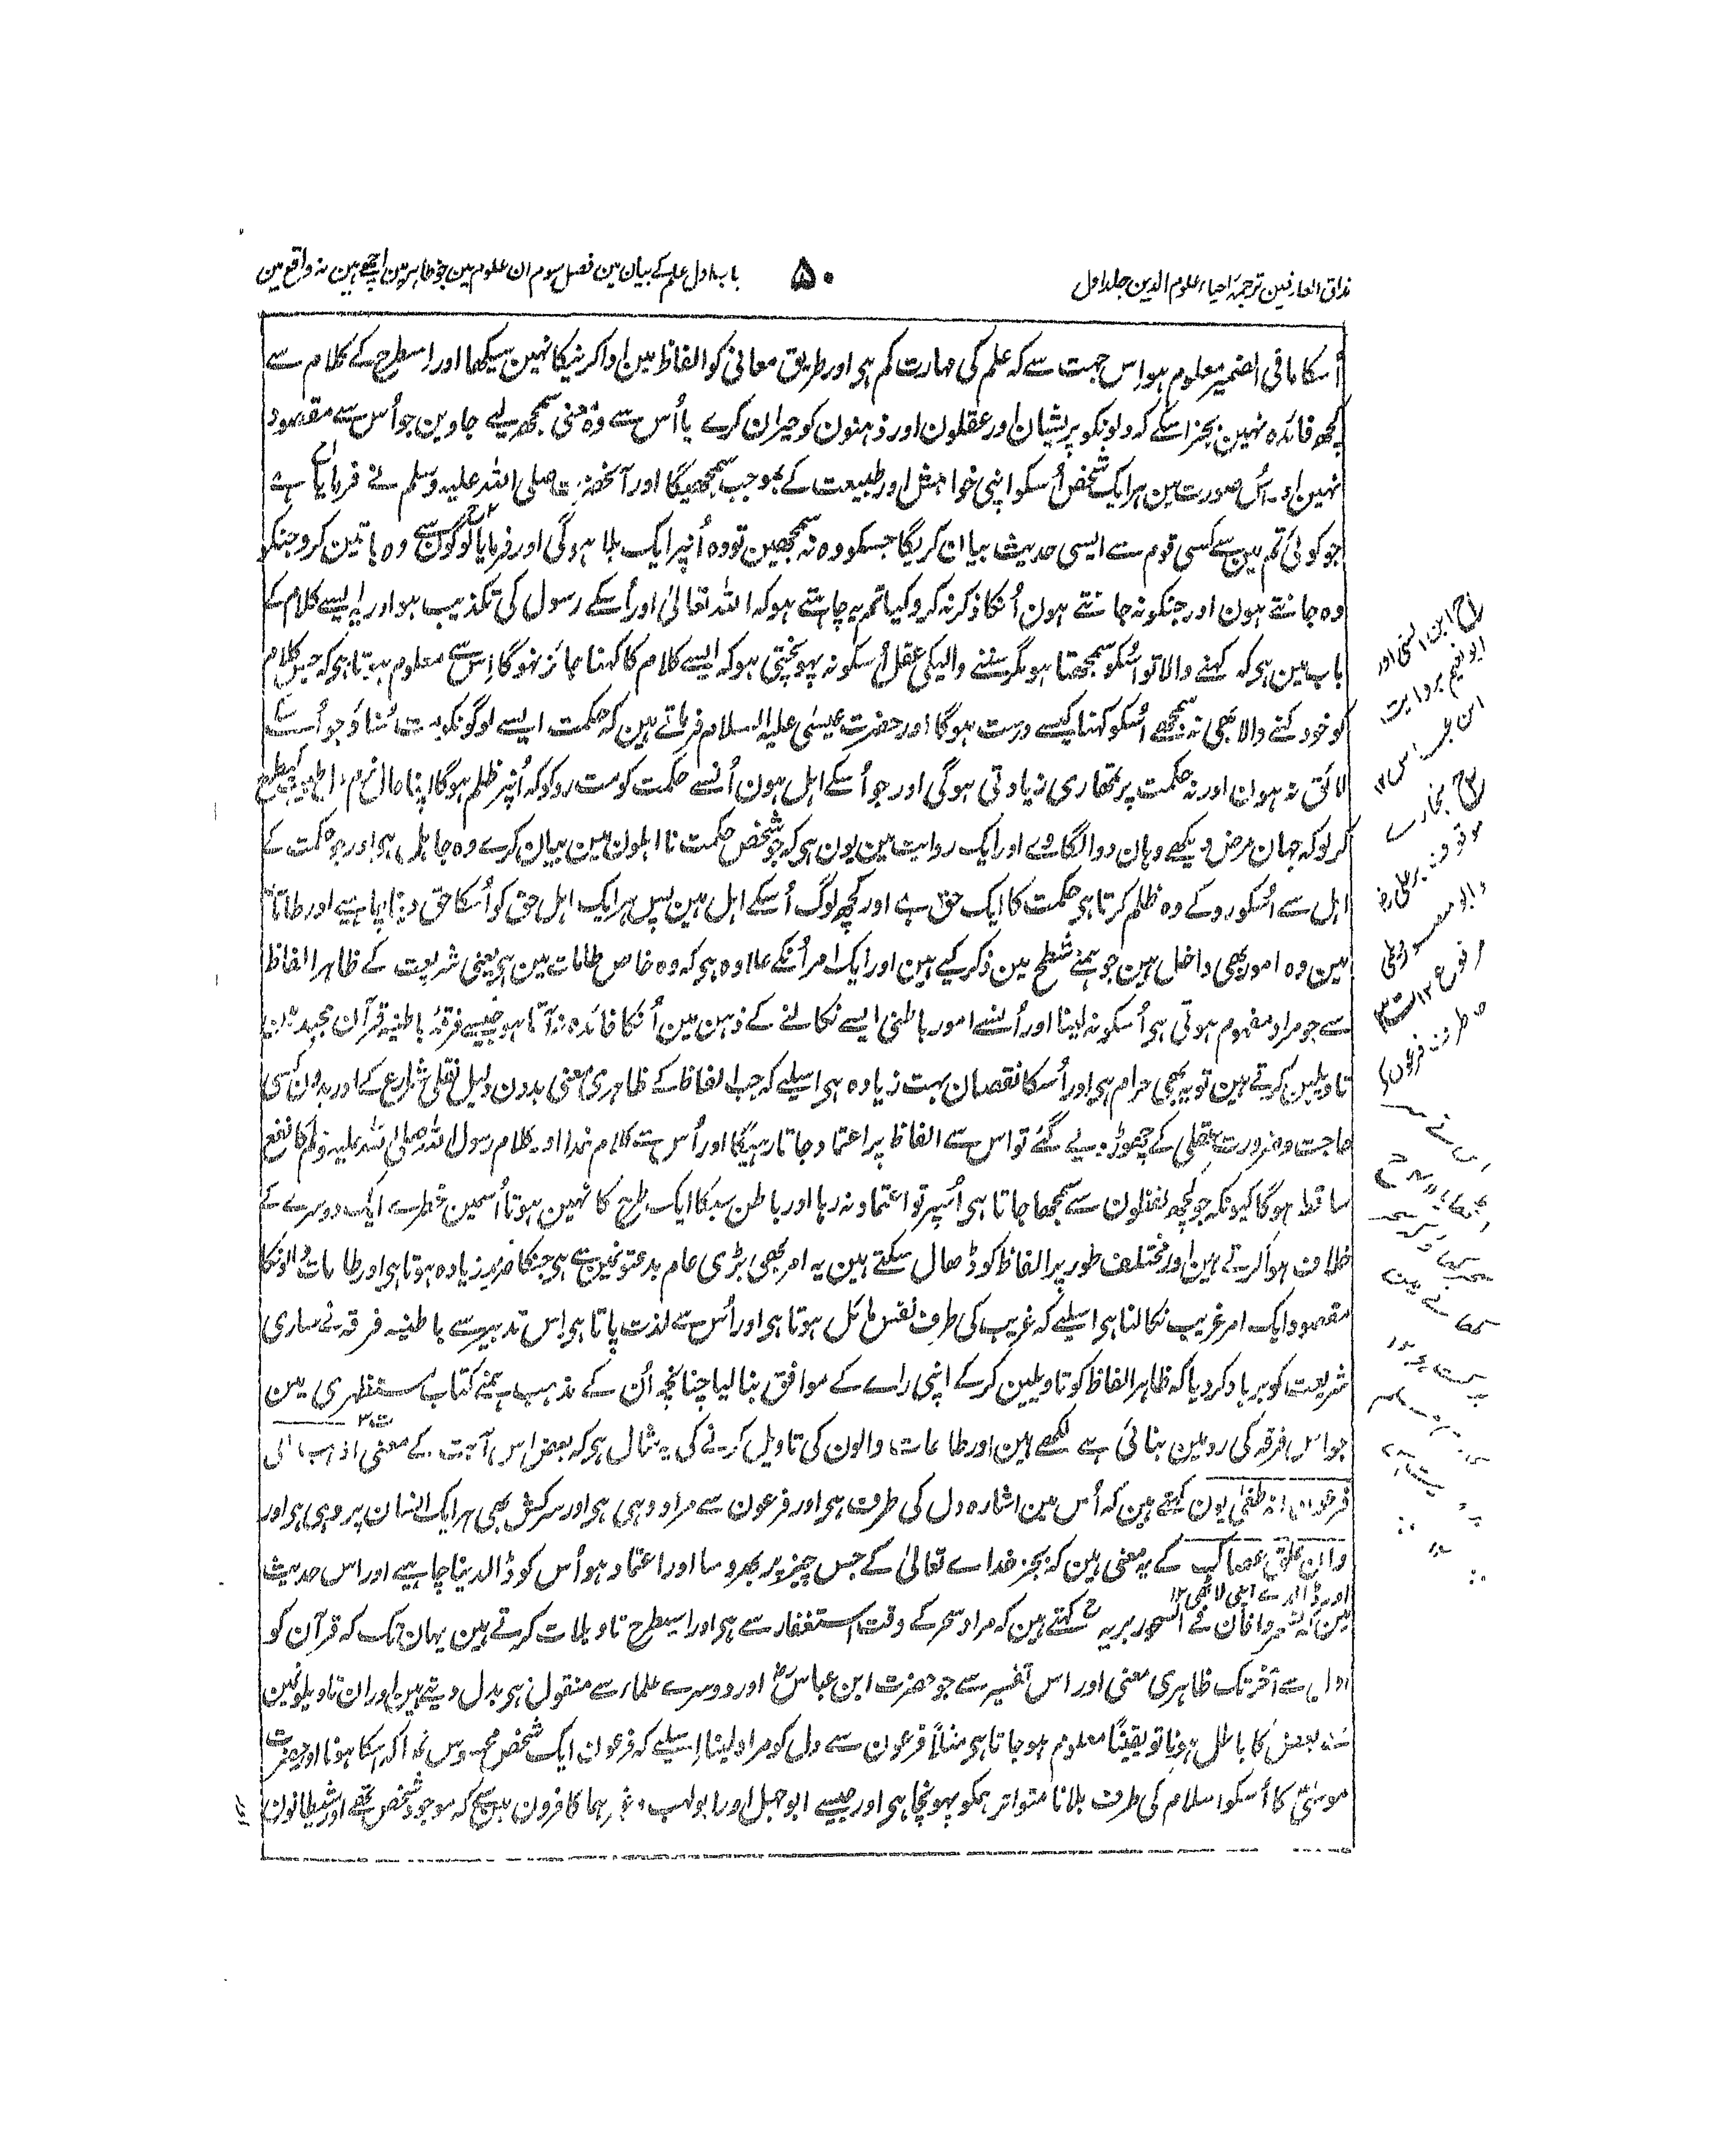 مذاق العارفین ترجمۂ احیاء علوم الدین جلد اول
۵۰
باب اول علم کے بیان مین فصل سوم ان علوم مین جو ظاہر مین اچھے ہین نہ واقع مین
اُسکا مافی الضمیر معلوم ہو اِس جہت سے کہ علم کی مہارت کم ہی اور طریق معانی کو الفاظ مین ادا کرنیکا نہین سیکھا اور اسطرح کے کلام سے
کچھ فائدہ نہین بجز اسکے کہ دلونکو پریشان اور عقلون اور ذہنون کو حیران کرے یا اُس سے وہ معنی سمجھ لیے جاوین جو اُس سے مقصود
نہین اور اس صورت مین ہر ایک شخص اُسکو اپنی خواہش اور طبیعت کے بموجب سمجھیگا اور آنحضرت صلی اللہ علیہ وسلم نے فرمایا ہے
جو کوئی تم مین سے کسی قوم سے ایسی حدیث بیان کریگا جسکو وہ نہ سمجھین تو وہ اُنپر ایک بلا ہوگی اور فرمایا لوگون سے وہ باتین کرو جنکو
وہ جانتے ہون اور جنکو نہ جانتے ہون اُنکا ذکر نہ کرو کیا تم یہ چاہتے ہو کہ اللہ تعالیٰ اور اُسکے رسول کی تکذیب ہو اور یہ ایسے کلام کے
باب مین ہی کہ کہنے والا تو اُسکو سمجھتا ہو مگر سننے والیکی عقل اُسکو نہ پہونچتی ہو کہ ایسے کلام کا کہنا جائز نہوگا اِس سے معلوم ہوتا ہی کہ جس کلام
کو خود کہنے والا بھی نہ سمجھے اُسکو کہنا کیسے درست ہوگا اور حضرت عیسیٰ علیہ السلام فرماتے ہین کہ حکمت ایسے لوگونکو مت سُناؤ جو اُسکے
لائق نہ ہون اور نہ حکمت پر تمھاری زیادتی ہوگی اور جو اُسکے اہل ہون اُنسے حکمت کو مت روکو کہ اُنپر ظلم ہوگا اپنا حال نرم طبیب کیطرح
کر لو کہ جہان مرض دیکھے وہان دوا لگاوے اور ایک روایت مین یون ہی کہ جو شخص حکمت نا اہلون مین بیان کرے وہ جاہل ہی اور جو حکمت کے
اہل سے اُسکو روکے وہ ظلم کرتا ہی حکمت کا ایک حق ہے اور کچھ لوگ اُسکے اہل ہین پس ہر ایک اہل حق کو اُسکا حق دینا چاہیے اور طامات
مین وہ امور بھی داخل ہین جو ہمنے شطح مین ذکر کیے ہین اور ایک امر اُنکے علاوہ ہی کہ وہ خاص طامات مین ہی یعنی شریعت کے ظاہر الفاظ
سے جو مراد مفہوم ہوتی ہی اُسکو نہ لینا اور اُنسے امور باطنی ایسے نکالنے کے ذہن مین اُنکا فائدہ نہ آتا ہو جیسے فرقۂ باطنیہ قرآن مجید مین
تاویلین کرتے ہین تو یہ بھی حرام ہی اور اُسکا نقصان بہت زیادہ ہی اسلیے کہ جب الفاظ کے ظاہری معنی بدون دلیل نقلی شارع کے اور بدون کسی
حاجت و ضرورت عقلی کے چھوڑ دیے گئے تو اس سے الفاظ پر اعتماد جاتا رہیگا اور اُس سے کلام خدا اور کلام رسول اللہ صلی اللہ علیہ وسلم کا نفع
ساقط ہوگا کیونکہ جو کچھ لفظون سے سمجھا جاتا ہی اُسپر تو اعتماد نہ رہا اور باطن سبکا ایک طرح کا نہین ہوتا اُسمین خطرے ایک دوسرے کے
خلاف ہوا کرتے ہین اور مختلف طور پر الفاظ کو ڈھال سکتے ہین یہ امر بھی بڑی عام بدعتونمین سے ہی جنکا ضرر زیادہ ہوتا ہی اور طامات والونکا
مقصود ایک امر غریب نکالنا ہی اسلیے کہ غریب کی طرف نفس مائل ہوتا ہی اور اُس سے لذت پاتا ہی اِس تدبیر سے باطنیہ فرقہ نے ساری
شریعت کو برباد کردیا کہ ظاہر الفاظ کو تاویلین کرکے اپنی راے کے موافق بنا لیا چنانچہ اُن کے مذہب ہمنے کتاب مستظہری مین
جو اس فرقہ کی رد مین بنائی ہے لکھے ہین اور طامات والون کی تاویل کرنے کی یہ مثال ہی کہ بعض اس آیت کے معنی اذہب الی
فرعون انہ طغیٰ یون کہتے ہین کہ اُس مین اشارہ دل کی طرف ہی اور فرعون سے مراد وہی ہی اور سرکش بھی ہر ایک انسان پر وہی ہی اور
وان الق عصاک کے یہ معنی ہین کہ بجز خداے تعالیٰ کے جس چیز پر بھروسا اور اعتماد ہو اُس کو ڈالدینا چاہیے اور اس حدیث
اور ڈالدے اپنی لاٹھی ۱۲
مین کہ تسحروا فان فی السحور برکۃ کہتے ہین کہ مراد سحر کے وقت استغفار سے ہی اور اسیطرح تاویلات کرتے ہین یہان تک کہ قرآن کو
اول سے آخر تک ظاہری معنی اور اس تفسیر سے جو حضرت ابن عباسؓ اور دوسرے علماء سے منقول ہی بدل دیتے ہین اور ان تاویلونمین
سے بعض کا باطل ہونا تو یقیناً معلوم ہو جاتا ہی مثلاً فرعون سے دل کو مراد لینا اِسلیے کہ فرعون ایک شخص محسوس تھا کہ اسکا ہونا اور حضرت
موسیٰؑ کا اُسکو اسلام کی طرف بلانا متواتر ہمکو پہونچا ہی اور جیسے ابو جہل اور ابو لہب وغیرہما کافرون مین سے کہ موجود شخص تھے اور شیطانون
ابن السنی اور
ابو نعیم بروایت
ابن عباس ۱۲
بخاری
موقوف بر علی رض
و ابو منصور دیلمی
مرفوع ۱۲
طرف فرعون